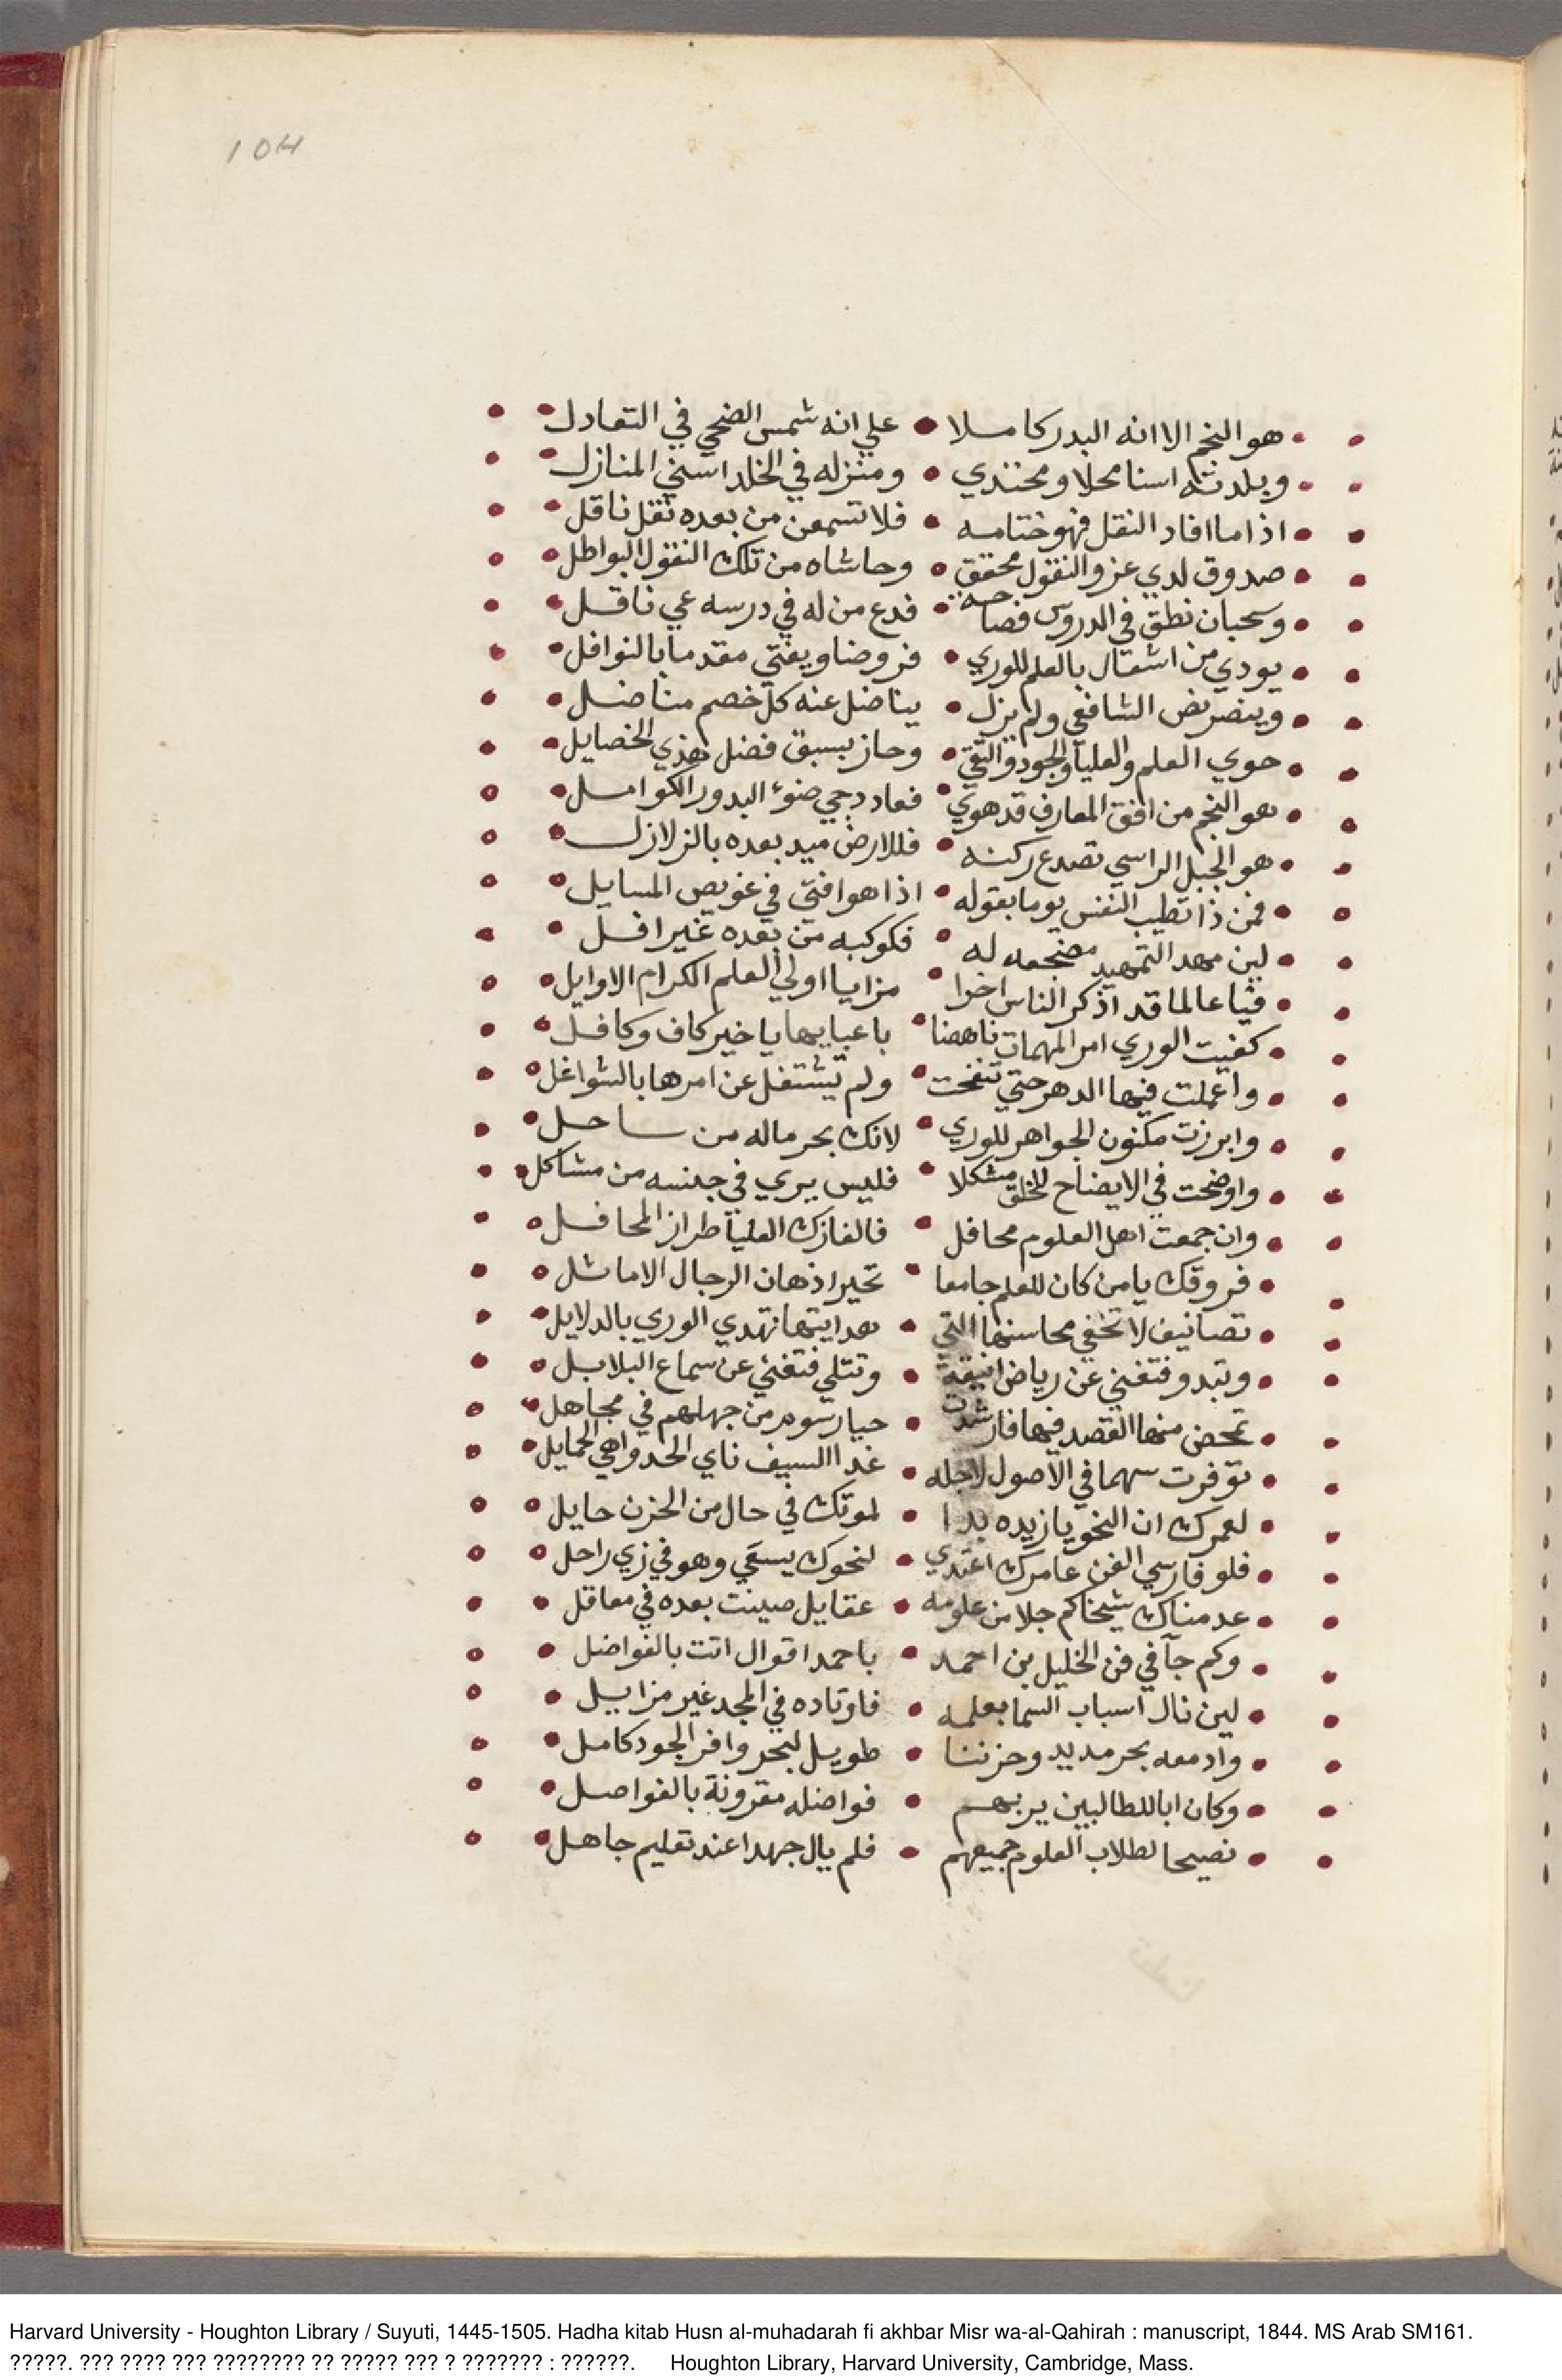 104
هو النجم الا انه البدر كاملا • علي انه شمس الضحي في التعادل
وبلدته اسنا محلا ومحتدي • ومنزله في الخلد اسني المنازل
اذا ما افاد النقل فهو ختامه • فلا تسمعن من بعده نقل ناقل
صدوق لدي عزو النقول محقق • وحاشاه من تلك النقول البواطل
وسحبان نطق في الدروس فصاحه • فدع من له في درسه عي ناقل
يودي من اشتغال بالعلم للوري • فروضا ويفتي مقدما بالنوافل
وينصر نص الشافعي ولم يزل • يناضل عنه كل خصم مناضل
حوي العلم والعليا والجود والتقي • وحاز بسبق فضل هذي الخصايل
هو النجم من افق المعارف قد هوي • فعاد دجي ضوء البدور الكوامل
هو الجبل الراسي تصدع ركنه • فللارض ميد بعده بالزلازل
فمن ذا تطيب النفس يوما بقوله • اذا هو افتي في عويص المسايل
لين مهد التمهيد مضجعه له • فكوكبه من بعده غير افل
فيا عالما قد اذكر الناس اخرا • مزايا اولي العلم الكرام الاوايل
كفيت الوري امر المهمات ناهضا • باعبايها يا خير كاف وكافل
واعملت فيها الدهر حتي تنقحت • ولم تشتغل عن امرها بالشواغل
وابرزت مكنون الجواهر للوري • لانك بحر ماله من ساحل
واوضحت في الايضاح للخلق مشكلا • فليس يري في جنسه من مشاكل
وان جمعت اهل العلوم محافل • فالغازك العليا طراز المحافل
فروقك يا من كان للعلم جامعا • تحير اذهان الرجال الاماثل
تصانيف لا تخفي محاسنها التي • هدايتها تهدي الوري بالدلايل
وتبدو فتغني عن رياض انيقة • وتتلي فتغني عن سماع البلابل
تمحض منها القصد فيها فارشدت • حياري سوي من جهلهم في مجاهل
توفرت سهما في الاصول لاجله • غدا السيف ناي الحد واهي الحمايل
لعمرك ان النحو يا زيده بدا • لموتك في حال من الحزن حايل
فلو فارسي الفن عامرك اغتدي • لنحوك يسعي وهو في زي راحل
عدمناك شيخا كم جلا من علومه • عقايل صينت بعده في معاقل
وكم جآ في فن الخليل بن احمد • باحمد اقوال اتت بالفواضل
لين نال اسباب السما بعلمه • فاوتاده في المجد غير مزايل
وادمعه بحر مديد وحزننا • طويل لبحر وافر الجود كامل
وكان ابا للطالبين يربهم • فواضله مقرونة بالفواصل
نصيحا لطلاب العلوم جميعهم • فلم يال جهدا عند تعليم جاهل
Harvard University - Houghton Library / Suyuti, 1445-1505. Hadha kitab Husn al-muhadarah fi akhbar Misr wa-al-Qahirah : manuscript, 1844. MS Arab SM161.
?????. ??? ???? ??? ???????? ?? ????? ??? ? ??????? : ??????. Houghton Library, Harvard University, Cambridge, Mass.